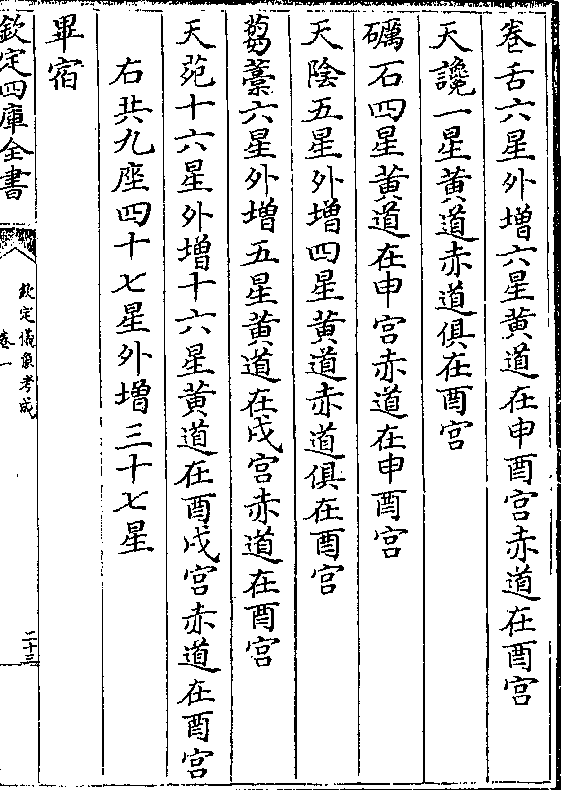 卷舌六星外增六星黄道在申酉宫赤道在酉宫
天讒一星黄道赤道俱在酉宫
礪石四星黄道在申宫赤道在申酉宫
天隂五星外增四星黄道赤道俱在酉宫
芻藁六星外增五星黄道在戌宫赤道在酉宫
天苑十六星外增十六星黄道在酉戌宫赤道在酉宫
右共九座四十七星外增三十七星
畢宿
欽定四庫全書
欽定儀象考成
卷一
二十三